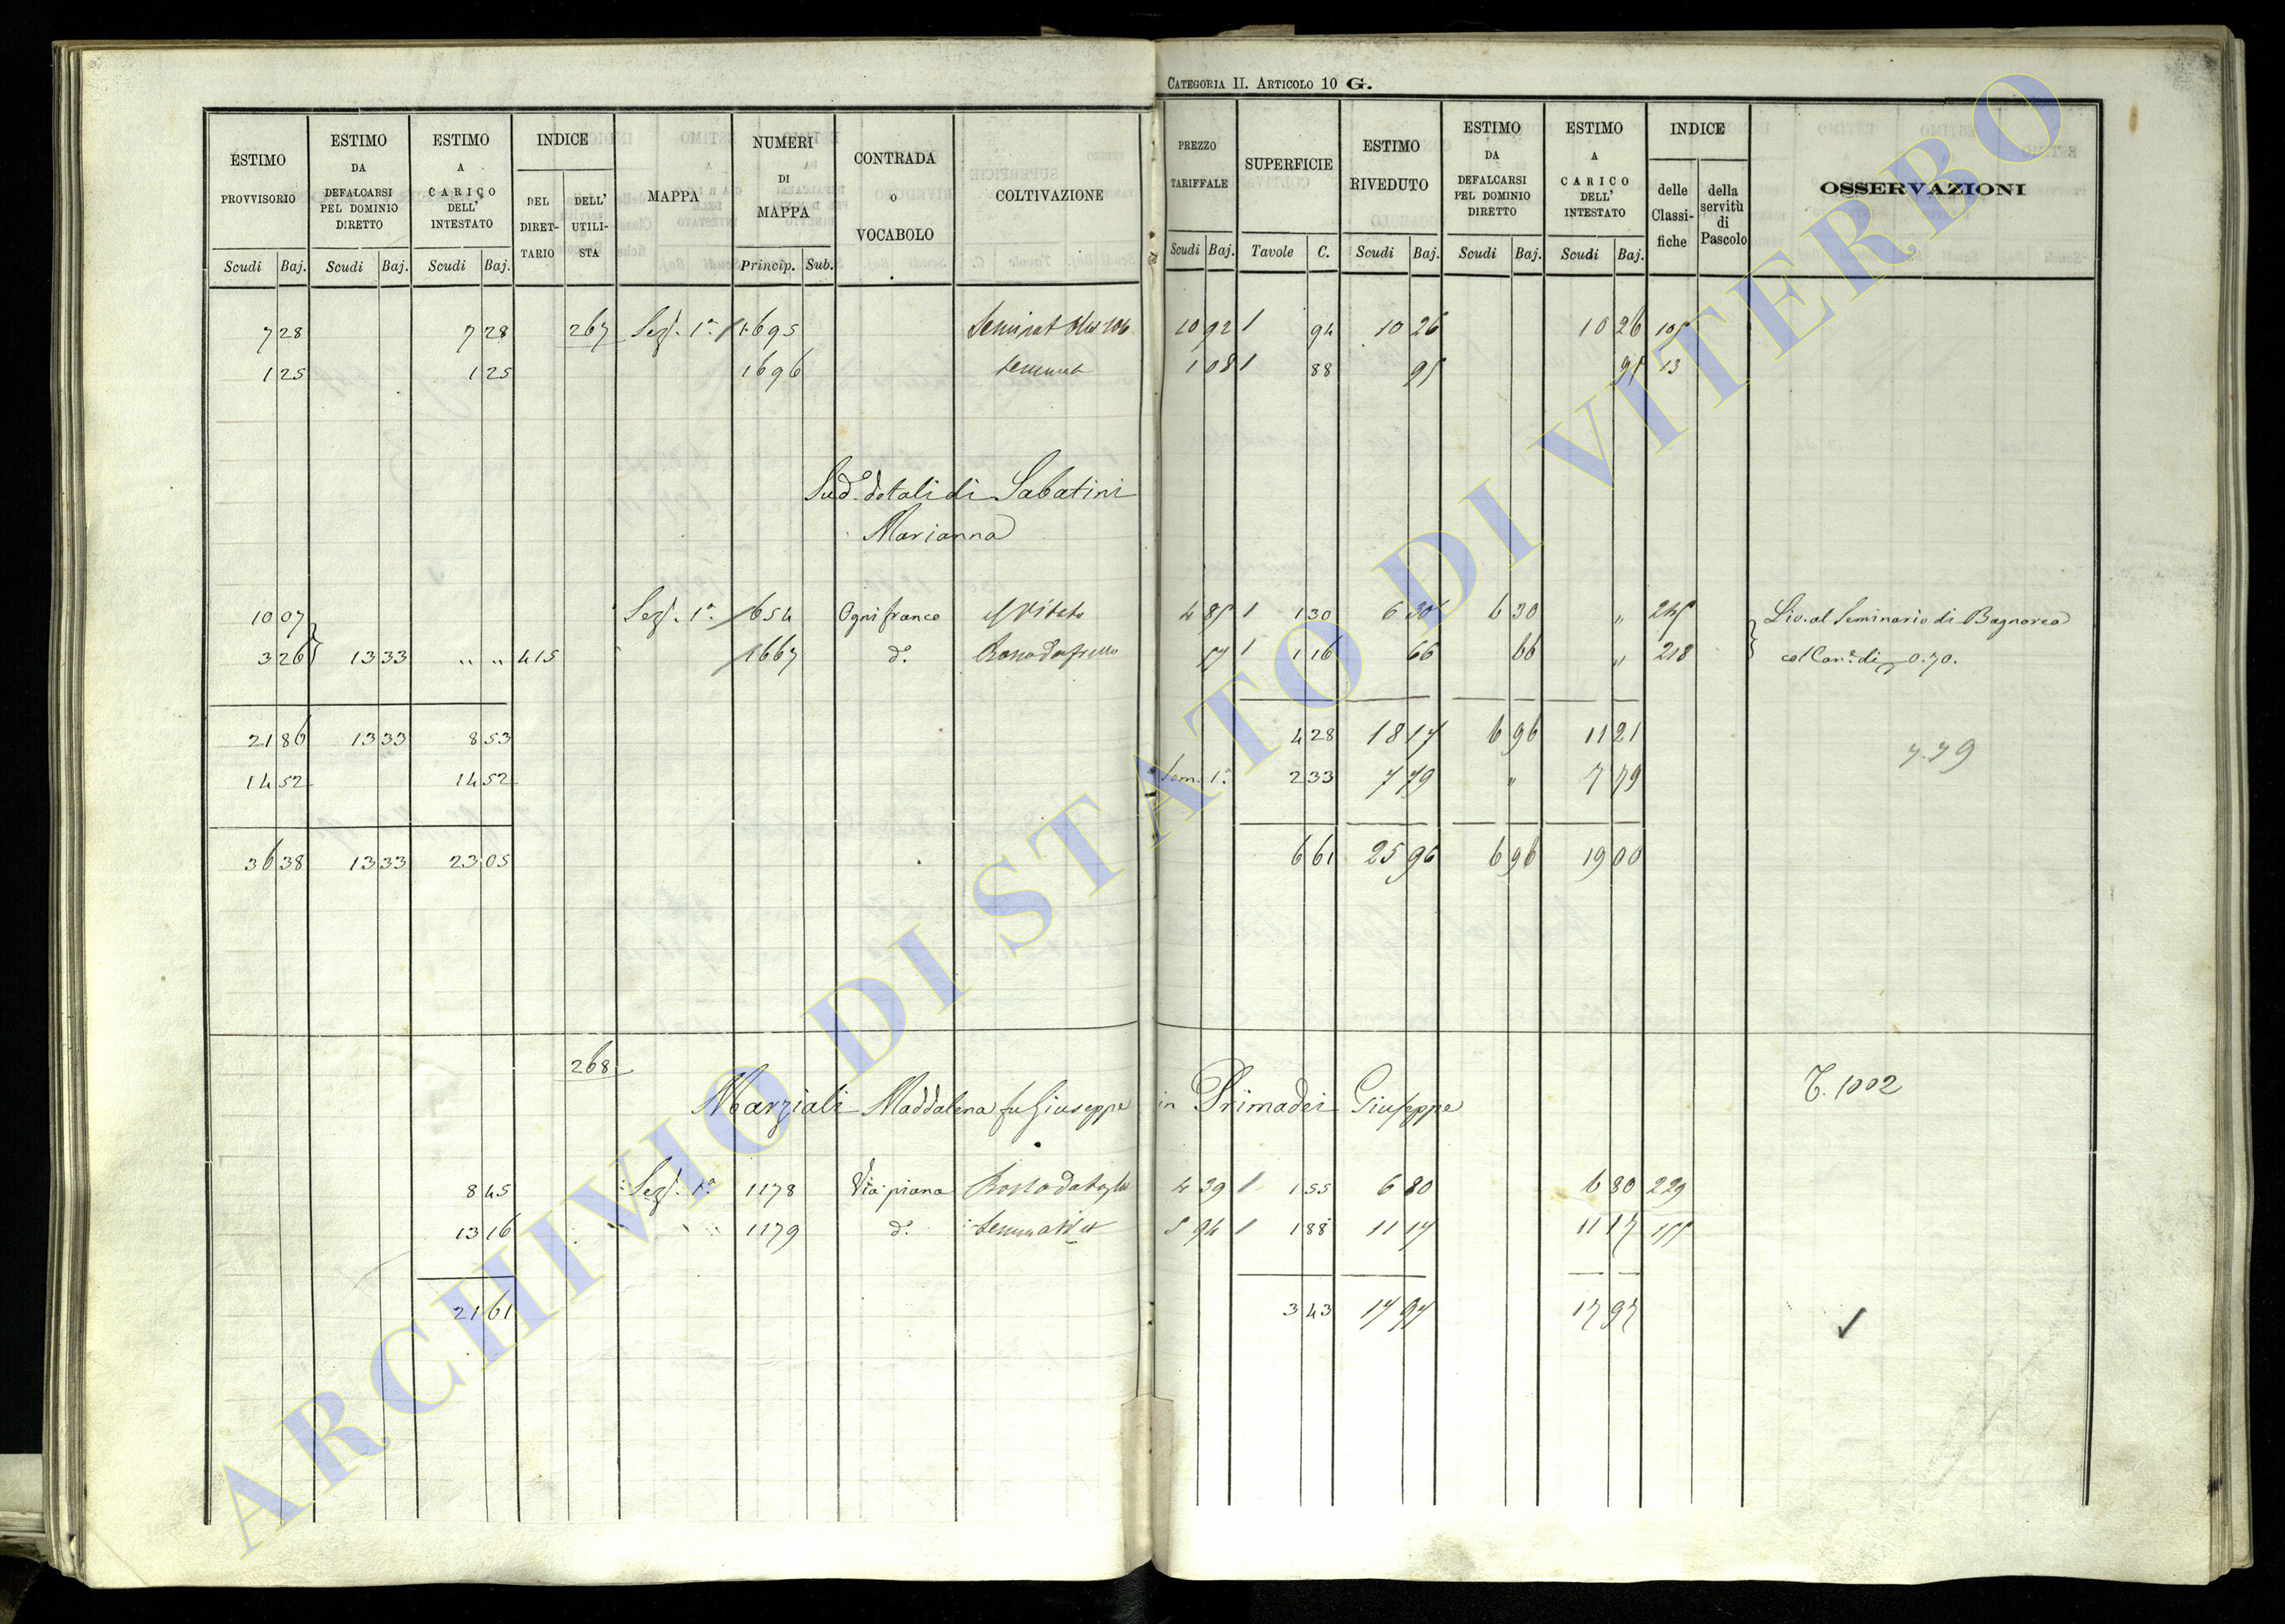 CATEGORIA II. ARTICOLO 10 G.
ESTIMO PROVVISORIO Scudi Baj.
ESTIMO DA DEFALCARSI PEL DOMINIO DIRETTO Scudi Baj.
ESTIMO A CARICO DELL' INTESTATO Scudi Baj.
INDICE DEL DIRET-TARIO DELL' UTILI-STA
MAPPA
NUMERI DI MAPPA Princip. Sub.
CONTRADA o VOCABOLO
COLTIVAZIONE
PREZZO TARIFFALE Scudi Baj.
SUPERFICIE Tavole C.
ESTIMO RIVEDUTO Scudi Baj.
ESTIMO DA DEFALCARSI PEL DOMINIO DIRETTO Scudi Baj.
ESTIMO A CARICO DELL' INTESTATO Scudi Baj.
INDICE delle Classi-fiche della servitù di Pascolo
OSSERVAZIONI
7 28 7 28 267 Sez. 1ª 1695 10 92 1 94 10 26 10 26
1 25 1 25 1696 1 08 1 88 95 95 13
Sud.º dotali di Sabatini
Marianna
10 07 Sez. 1ª 1654 Ognifranco 4 85 1 1 30 6 30 6 30 " Liv. al Seminario di Bagnorea
3 26 13 33 " " 415 1667 d.º 57 1 1 16 66 66 " 218 col Can.e di 0.70.
21 86 13 33 8 53 4 28 18 17 6 96 11 21
14 52 14 52 Som. 1ª 2 33 7 79 " 7 79 7.79
36 38 13 33 23 05 6 61 25 96 6 96 19 00
268
Marziali Maddalena fu Giuseppe in Primadei Giuseppe T. 1002
8 45 Sez. 1ª 1178 Via piana 4 39 1 1 55 6 80 6 80 229
13 16 1179 d.º 5 94 1 1 88 11 17 11 17
21 61 3 43 17 97 17 97
ARCHIVIO DI STATO DI VITERBO